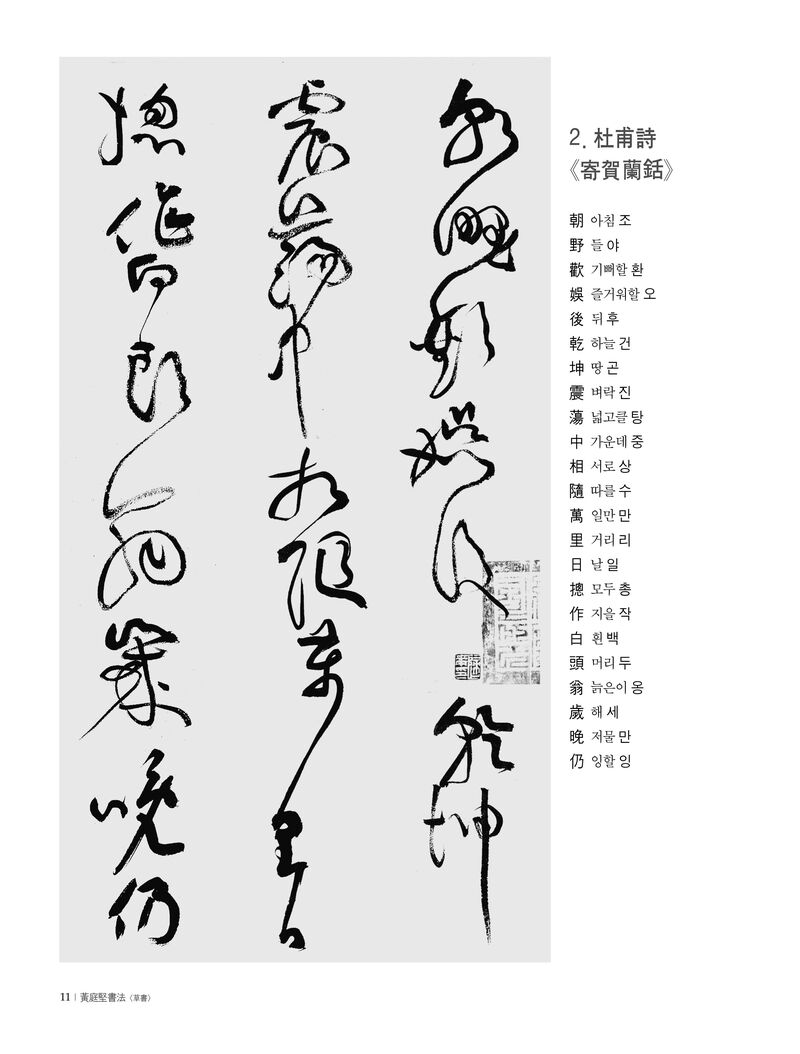 朝野歡娛後乾坤
震蕩中相隨萬里日
摠作白頭翁歲晚仍
2. 杜甫詩
《寄賀蘭銛》
朝 아침 조
野 들 야
歡 기뻐할 환
娛 즐거워할 오
後 뒤 후
乾 하늘 건
坤 땅 곤
震 벼락 진
蕩 넓고클 탕
中 가운데 중
相 서로 상
隨 따를 수
萬 일만 만
里 거리 리
日 날 일
摠 모두 총
作 지을 작
白 흰 백
頭 머리 두
翁 늙은이 옹
歲 해 세
晚 저물 만
仍 잉할 잉
11 | 黃庭堅書法〈草書〉